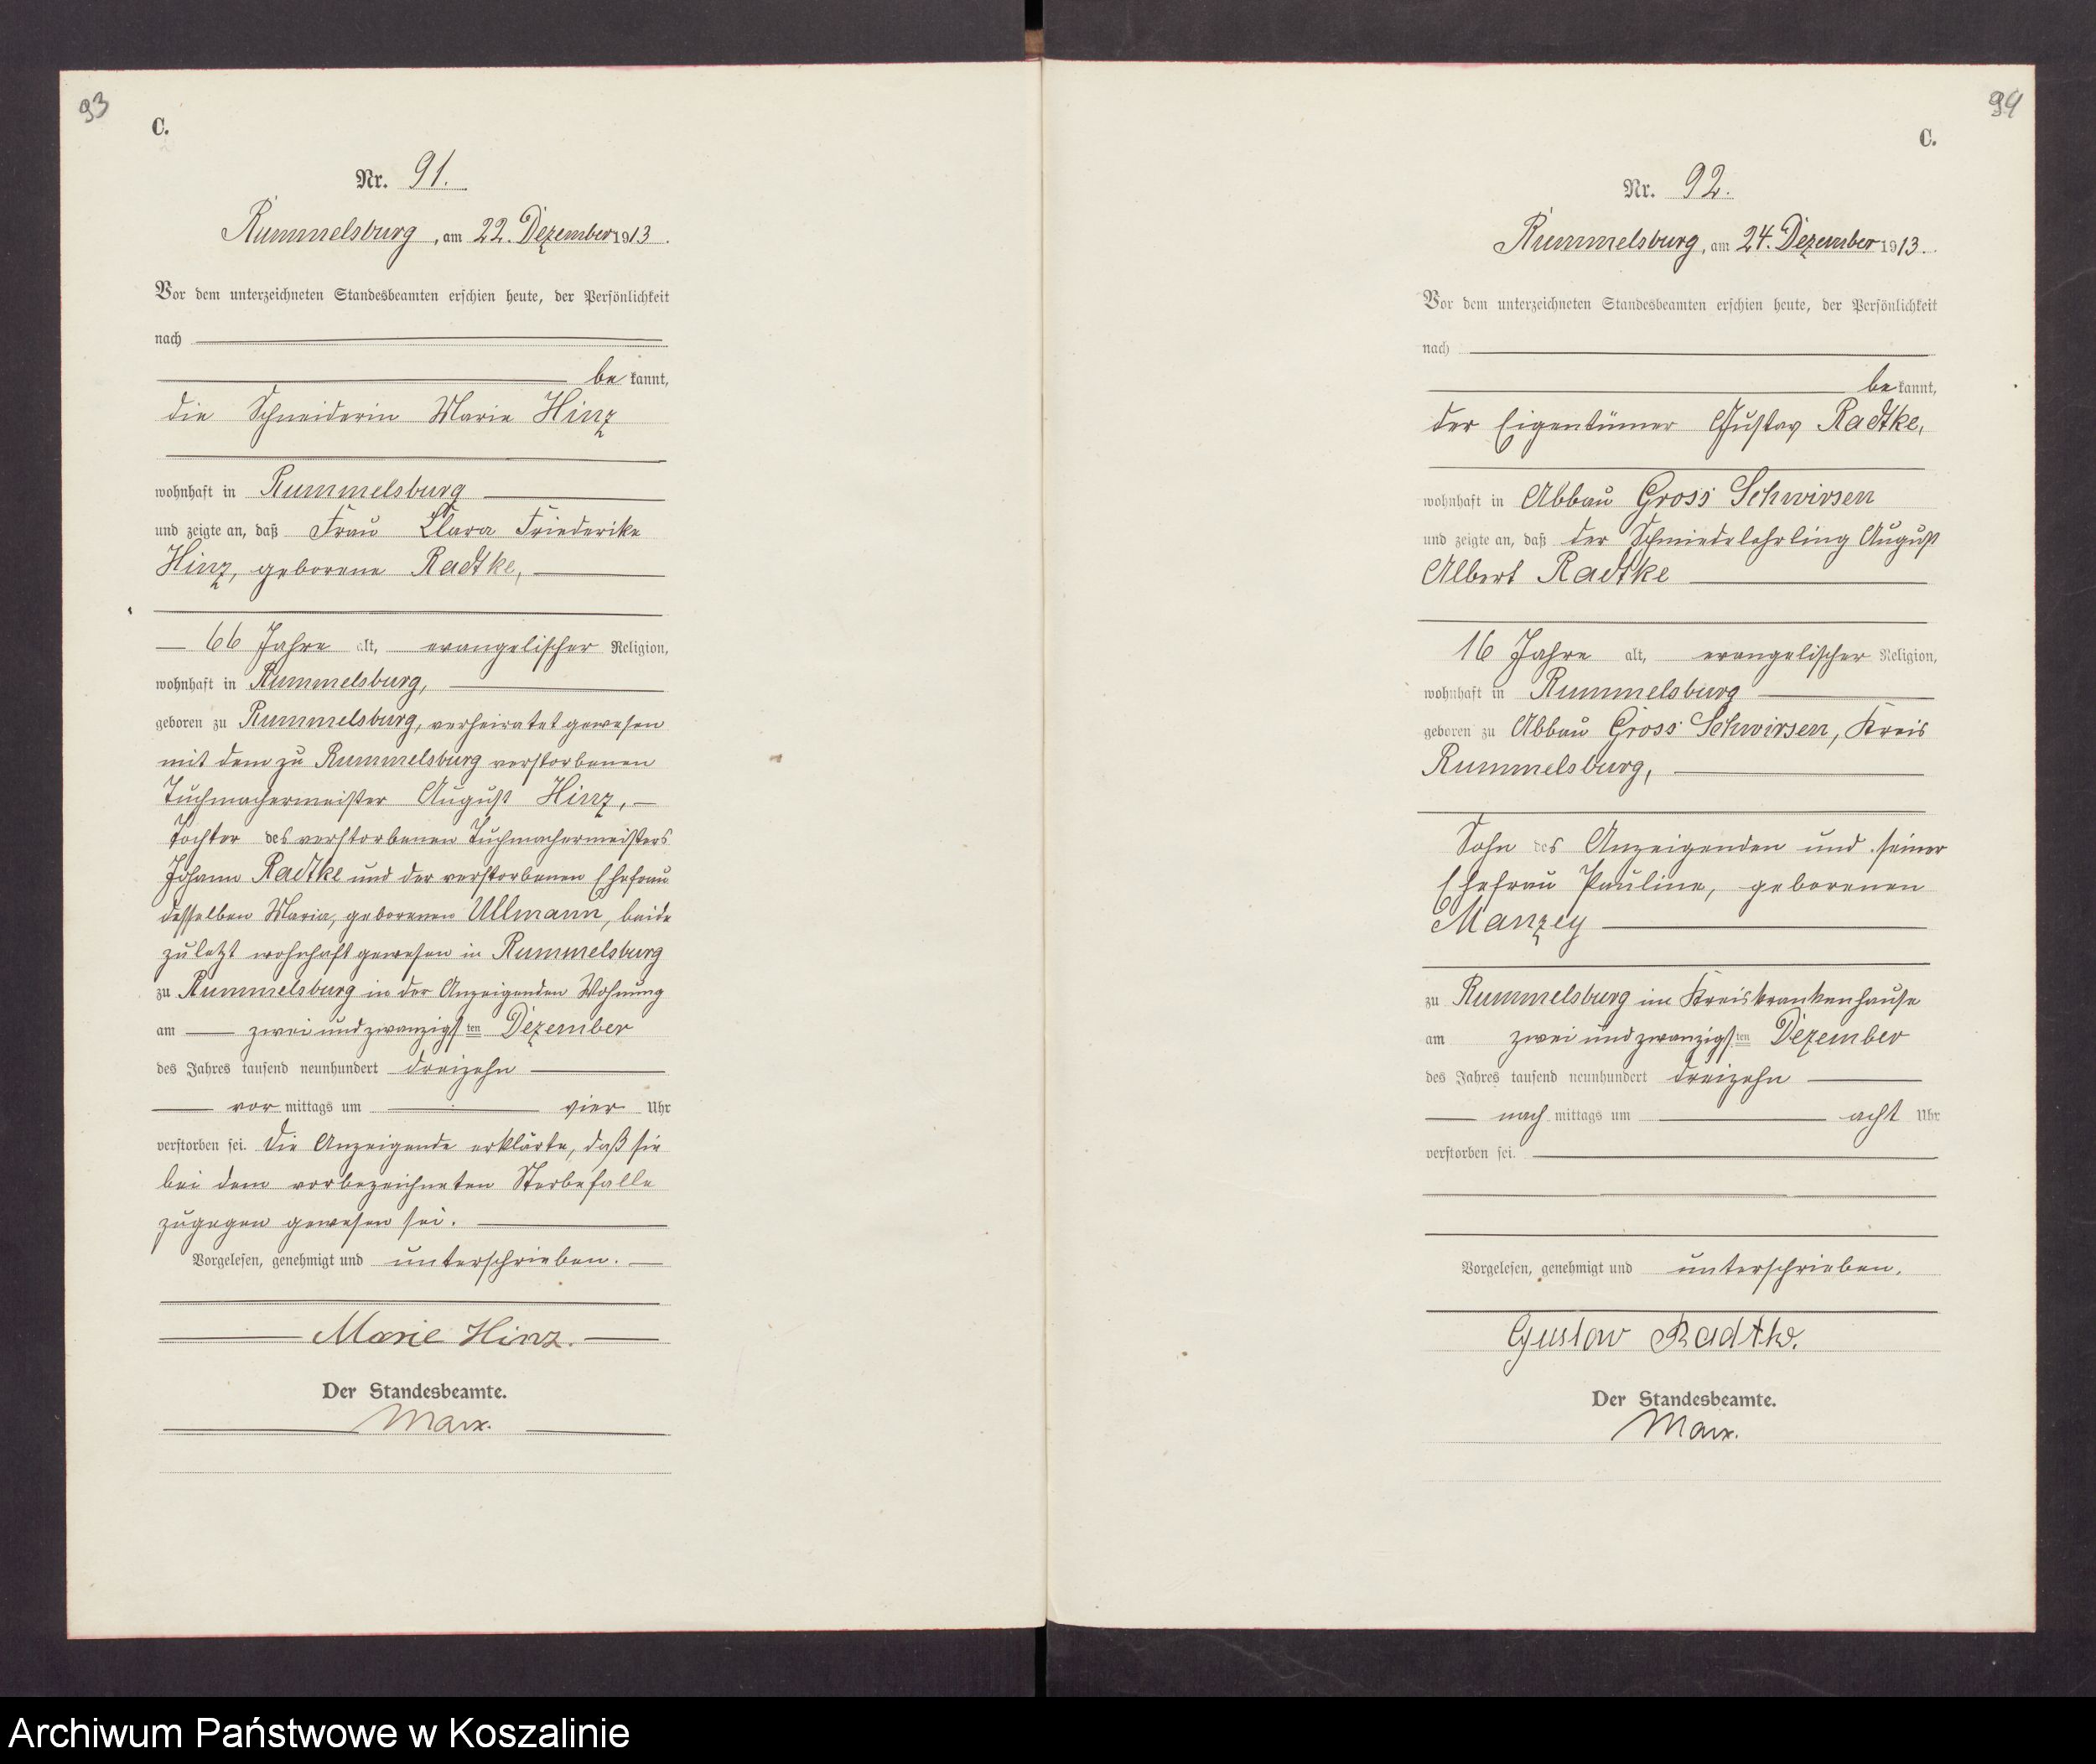 93
C.
Nr. 91.
Rummelsburg, am 22. Dezember 1913.
Vor dem unterzeichneten Standesbeamten erschien heute, der Persönlichkeit
nach
be kannt,
die Schneiderin Marie Hinz
wohnhaft in Rummelsburg
und zeigte an, daß Frau Clara Friederike
Hinz, geborene Radtke,
66 Jahre alt, evangelischer Religion,
wohnhaft in Rummelsburg,
geboren zu Rummelsburg, verheiratet gewesen
mit dem zu Rummelsburg verstorbenen
Tuchmachermeister August Hinz,
Tochter des verstorbenen Tuchmachermeisters
Johann Radtke und der verstorbenen Ehefrau
desselben Maria, geborenen Ullmann, beide
zuletzt wohnhaft gewesen in Rummelsburg
zu Rummelsburg in der Anzeigenden Wohnung
am zwei und zwanzigsten Dezember
des Jahres tausend neunhundert dreizehn
vor mittags um vier Uhr
verstorben sei. Die Anzeigende erklärte, daß sie
bei dem vorbezeichneten Sterbefalle
zugegen gewesen sei.
Vorgelesen, genehmigt und unterschrieben.
Marie Hinz.
Der Standesbeamte.
Marx.
94
C.
Nr. 92.
Rummelsburg, am 24. Dezember 1913.
Vor dem unterzeichneten Standesbeamten erschien heute, der Persönlichkeit
nach
be kannt,
der Eigentümer Gustav Radtke,
wohnhaft in Abbau Gross Schwirsen
und zeigte an, daß der Schmiedelehrling August
Albert Radtke
16 Jahre alt, evangelischer Religion,
wohnhaft in Rummelsburg
geboren zu Abbau Gross Schwirsen, Kreis
Rummelsburg,
Sohn des Anzeigenden und seiner
Ehefrau Pauline, geborenen
Manzey
zu Rummelsburg im Kreiskrankenhause
am zwei und zwanzigsten Dezember
des Jahres tausend neunhundert dreizehn
nach mittags um acht Uhr
verstorben sei.
Vorgelesen, genehmigt und unterschrieben.
Gustav Radtke.
Der Standesbeamte.
Marx.
Archiwum Państwowe w Koszalinie